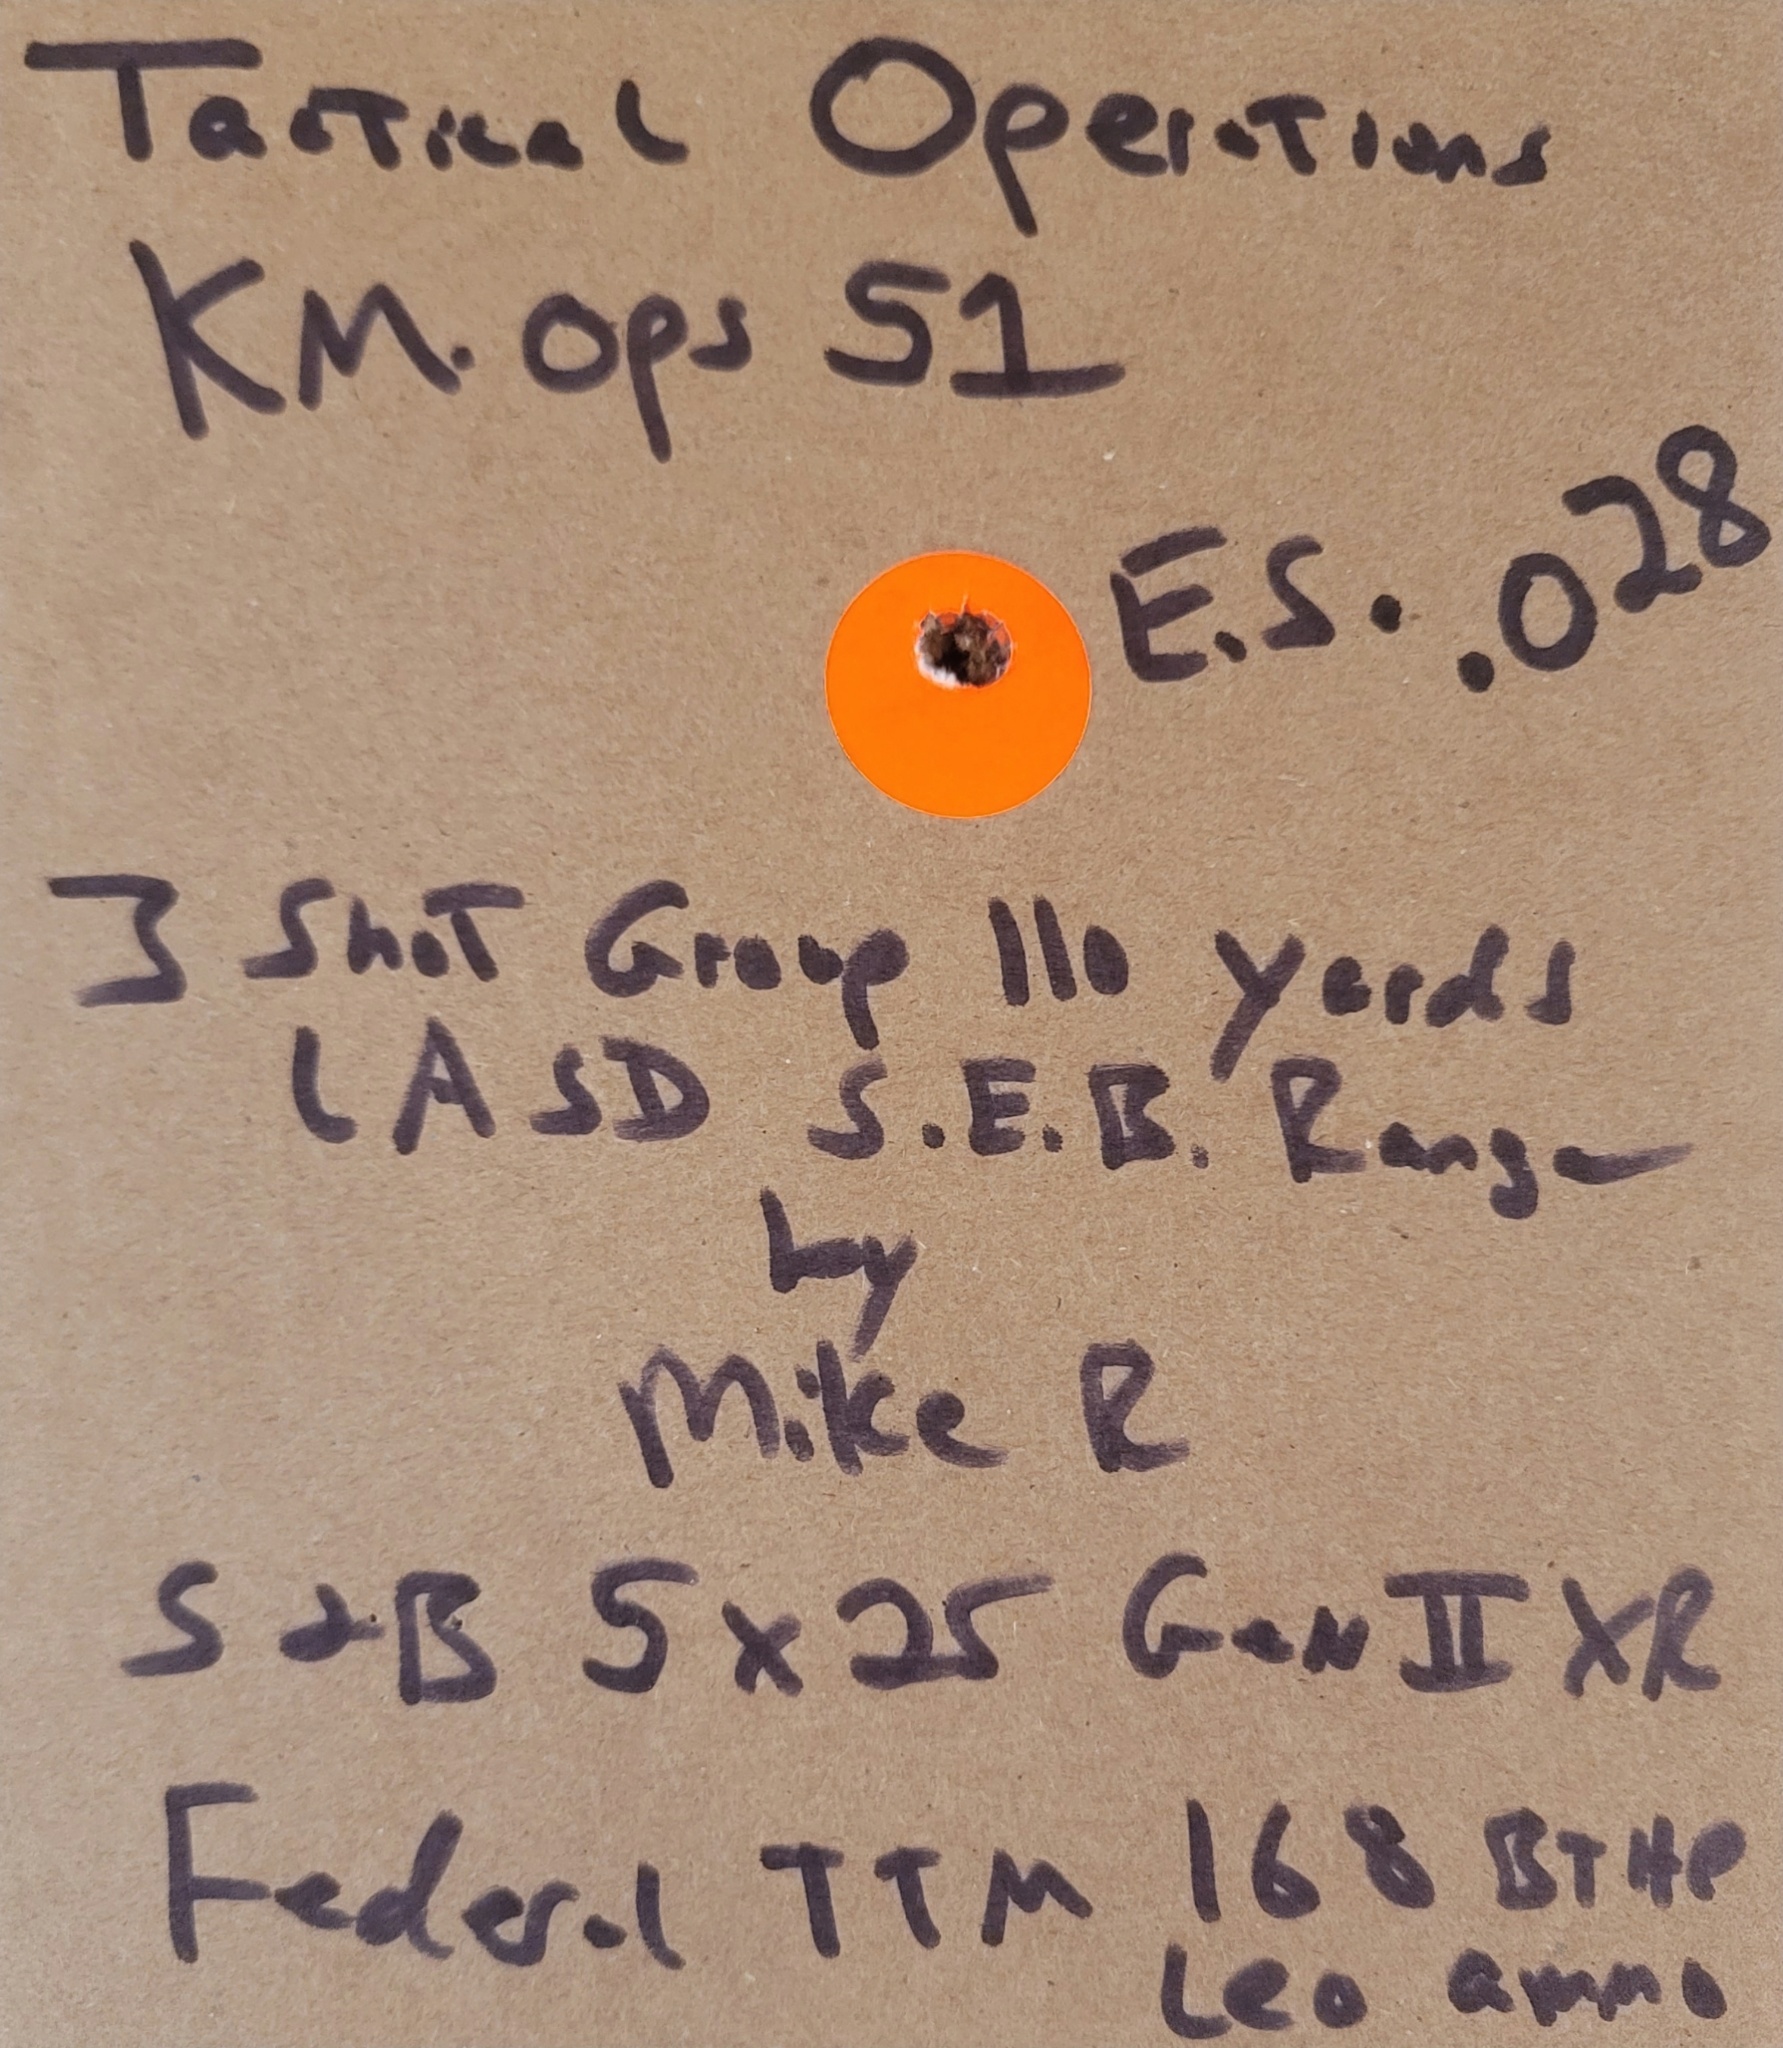 Tactical Operations
KM. Ops 51
E.S. .028
3 Shot Group 110 yards
LASD S.E.B. Range
by
Mike R
S&B 5x25 Gen II XR
Federal TTM 168 BTHP
Leo ammo